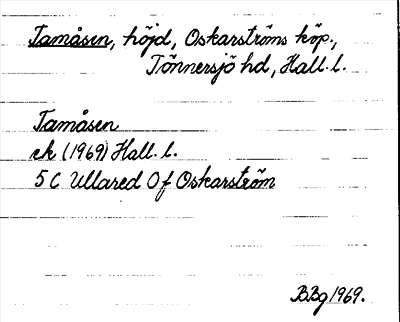 Tamåsen, höjd, Oskarströms köp.,
Tönnersjö hd, Hall. l.
Tamåsen
ek (1969) Hall. l.
5 C Ullared Of Oskarström
BBg 1969.